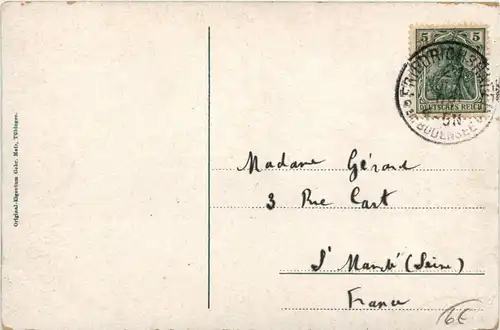 5 5
DEUTSCHES REICH
BODENSEE
Original-Eigentum Gebr. Metz, Tübingen.
Madame Gérard
3 Rue Cart
St Mandé (Seine)
France
6€